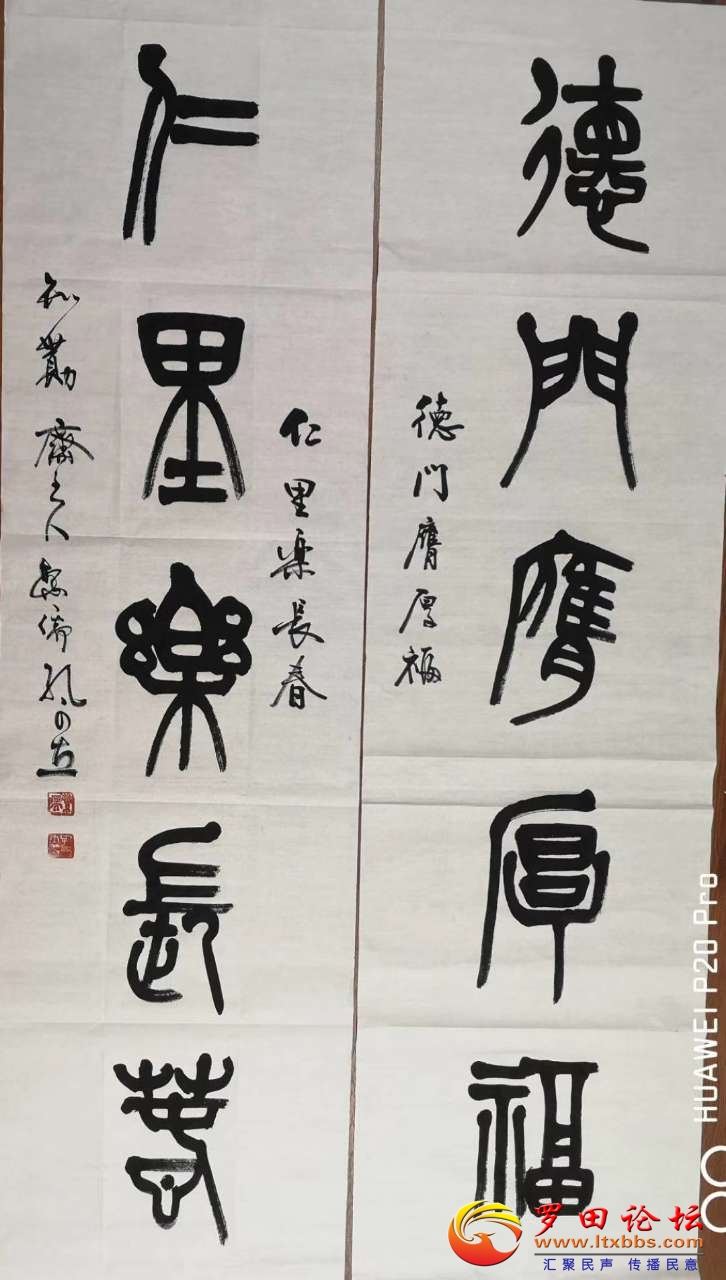 德門膺厚福
德門膺厚福
仁里樂長春
仁里樂長春
HUAWEI P20 Pro
罗田论坛
www.ltxbbs.com
汇聚民声 传播民意